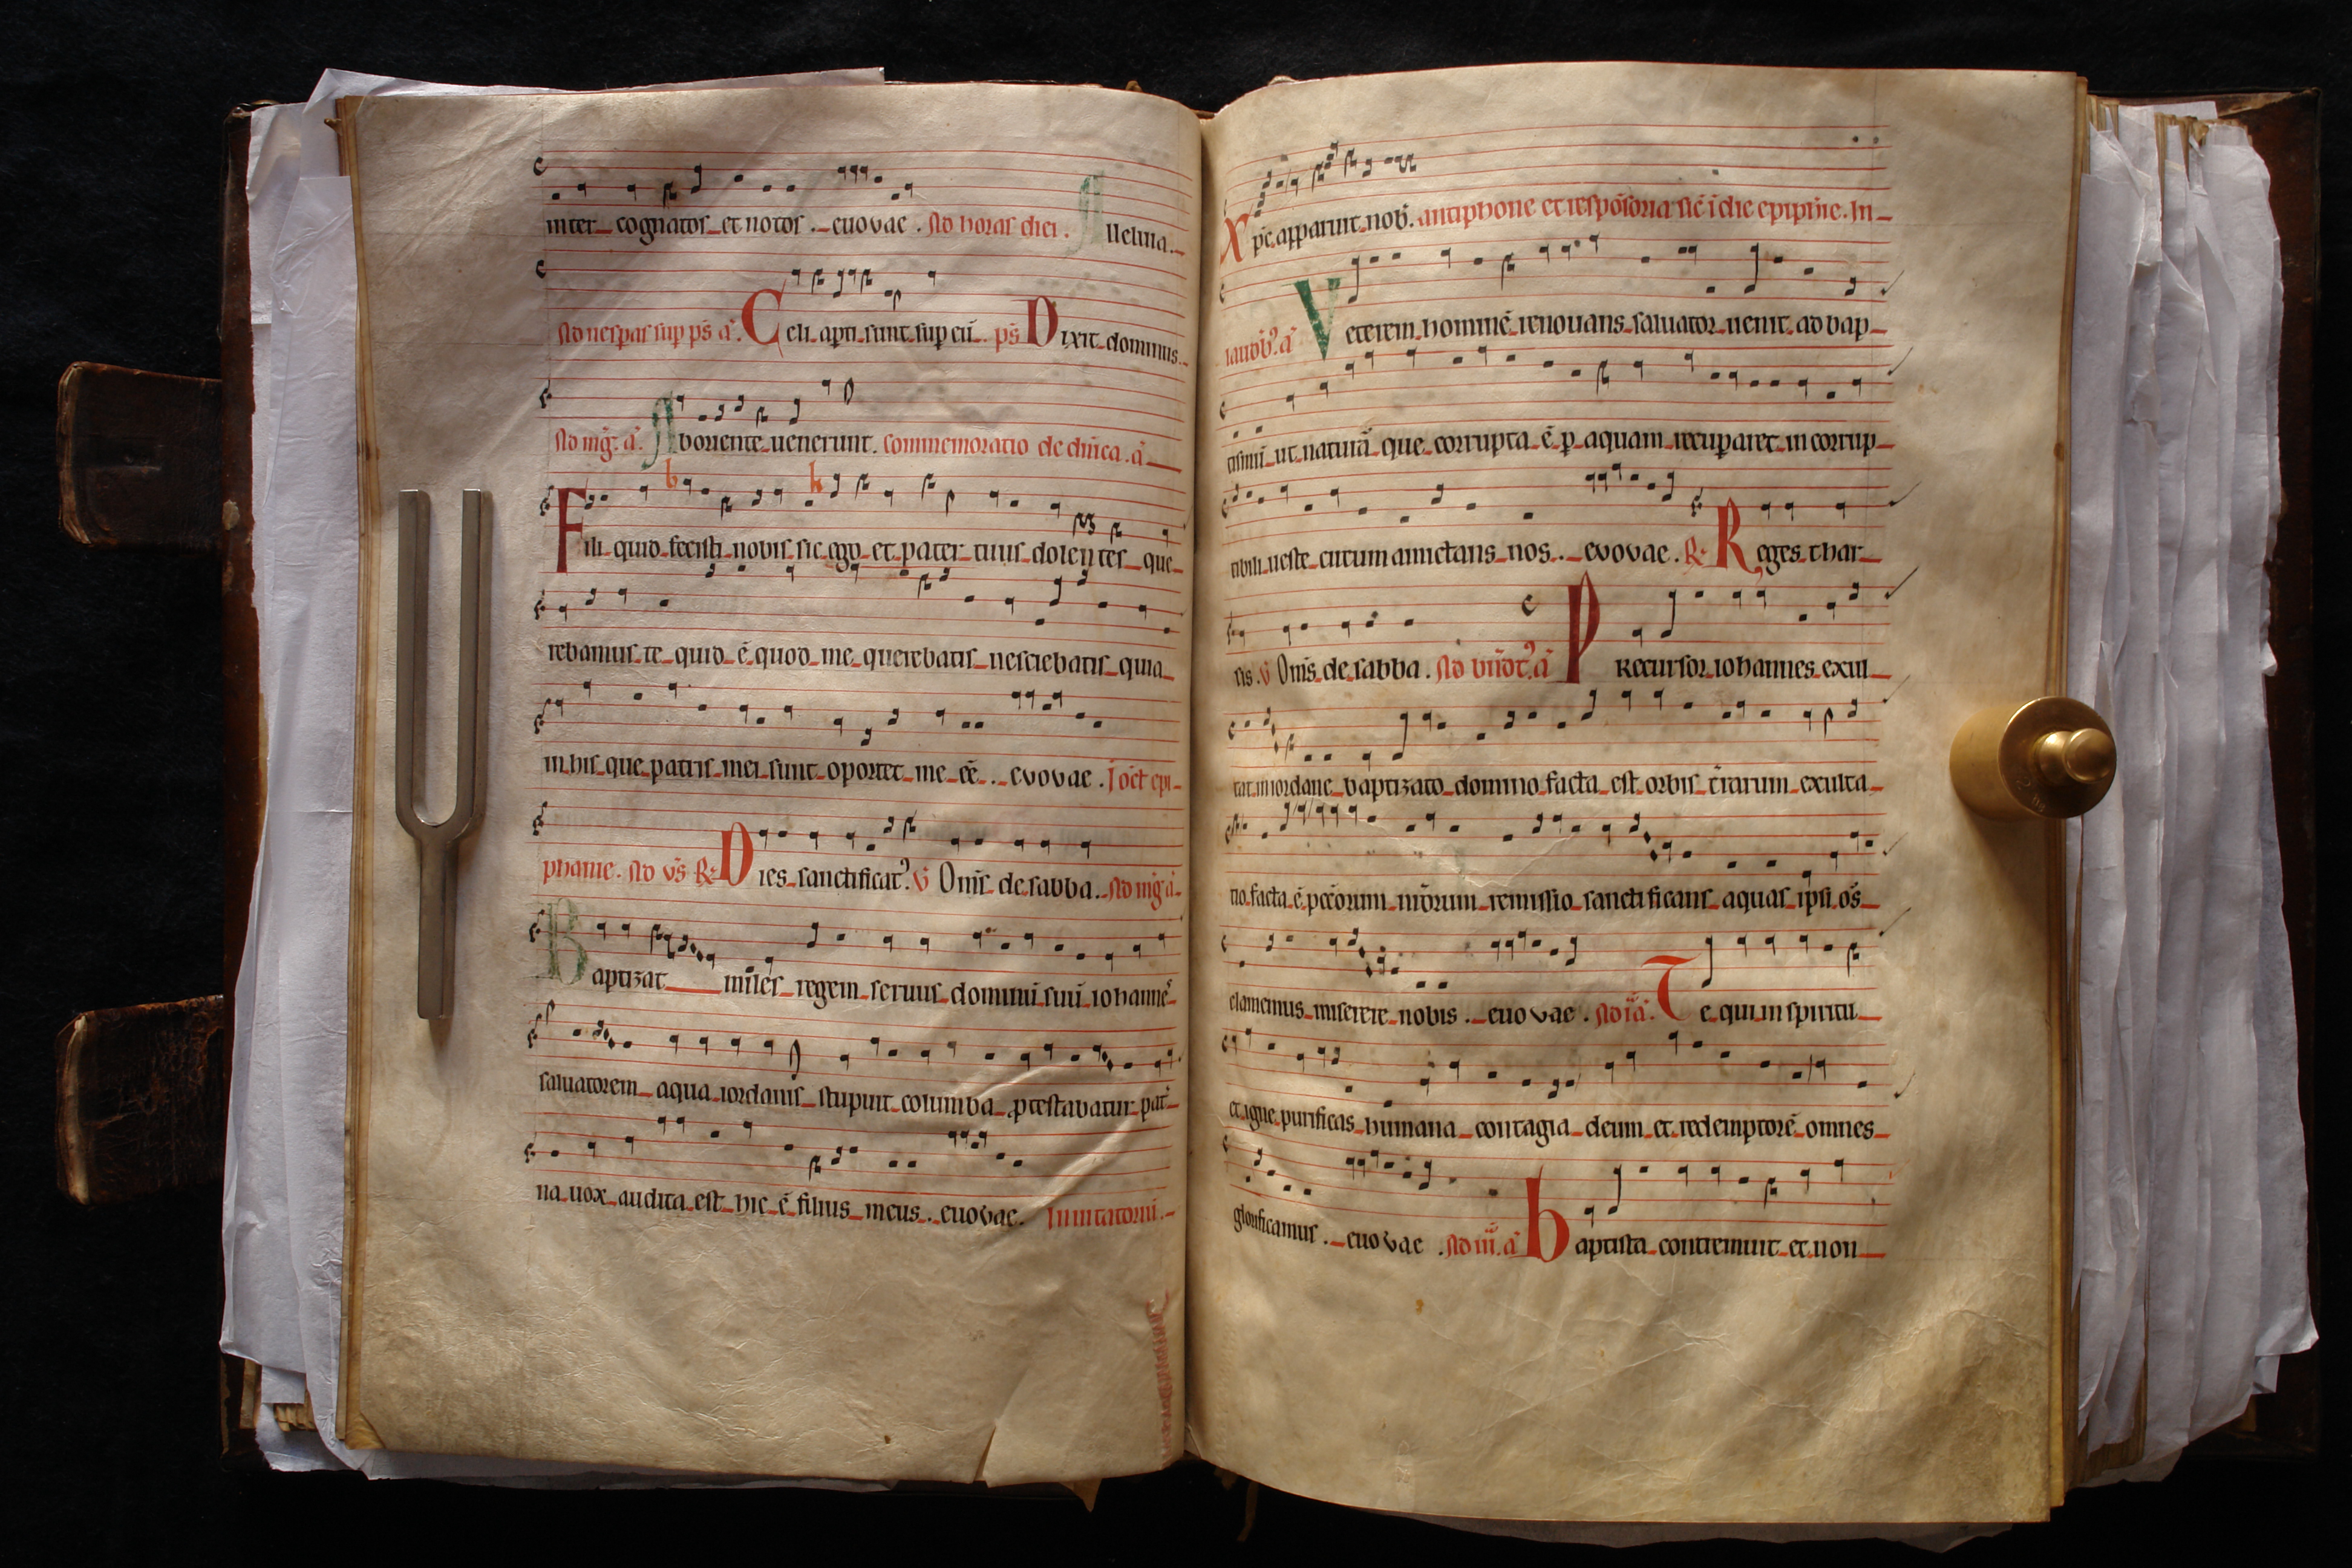 inter cognatos et notos . euovae . Ad horas diei . Alleluia .
Ad uesꝑas suꝑ pš ā . Celi aꝑti sunt suꝑ eū . pš Dixit dominus .
Ad mḡ . ā . Ab oriente uenerunt . Commemoratio de dn̄ica . ā
Fili quid fecisti nobis sic ego et pater tuus dolentes que
rebamus te quid ē quod me querebatis nesciebatis quia
in his que patris mei sunt oportet me eē . euovae . J oct̄ epi
phanie . Ad vš R Dies sanctificat᾽ . v̄ Om̄s de sabba . Ad mḡ ā
Baptizat miles regem seruus dominū suū iohannes
saluatorem aqua iordanis stupuit columba ꝓtestabatur pat
na uox audita est hic ē filius meus . euovae . Inuitatoriū .
Xpc̄ apparuit nob̄ . antiphone et respōsoria sic̄ ī die epiphie . In
laudib᾽ . ā Veterem hominē renouans saluator uenit ad bap
tismū ut naturā que corrupta ē ꝑ aquam recuꝑaret incorrup
tibili ueste circumamictans nos . euovae . R Reges thar
sis . v̄ Om̄s de sabba . ā Precursor iohannes exul
tat in iordane baptizato domino facta est orbis t̄rarum exulta
tio facta ē pcc̄orum nr̄orum remissio sanctificans aquas ipsi os̄
clamemus miserere nobis . euovae . Ad iā . Te qui in spiritu
et igne purificas humana contagia deum et redemptorē omnes
glorificamus . euovae . Ad iii . ā Baptista contremuit et non